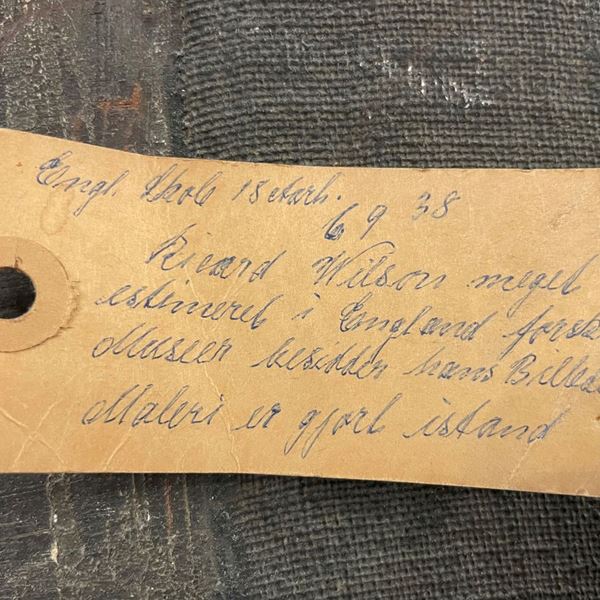 Engl. Skol 18 aarh.
69 38
Ricard Wilson meget
estemeret i England først
Museer besidder hans Billed
Maleri er gjort istand